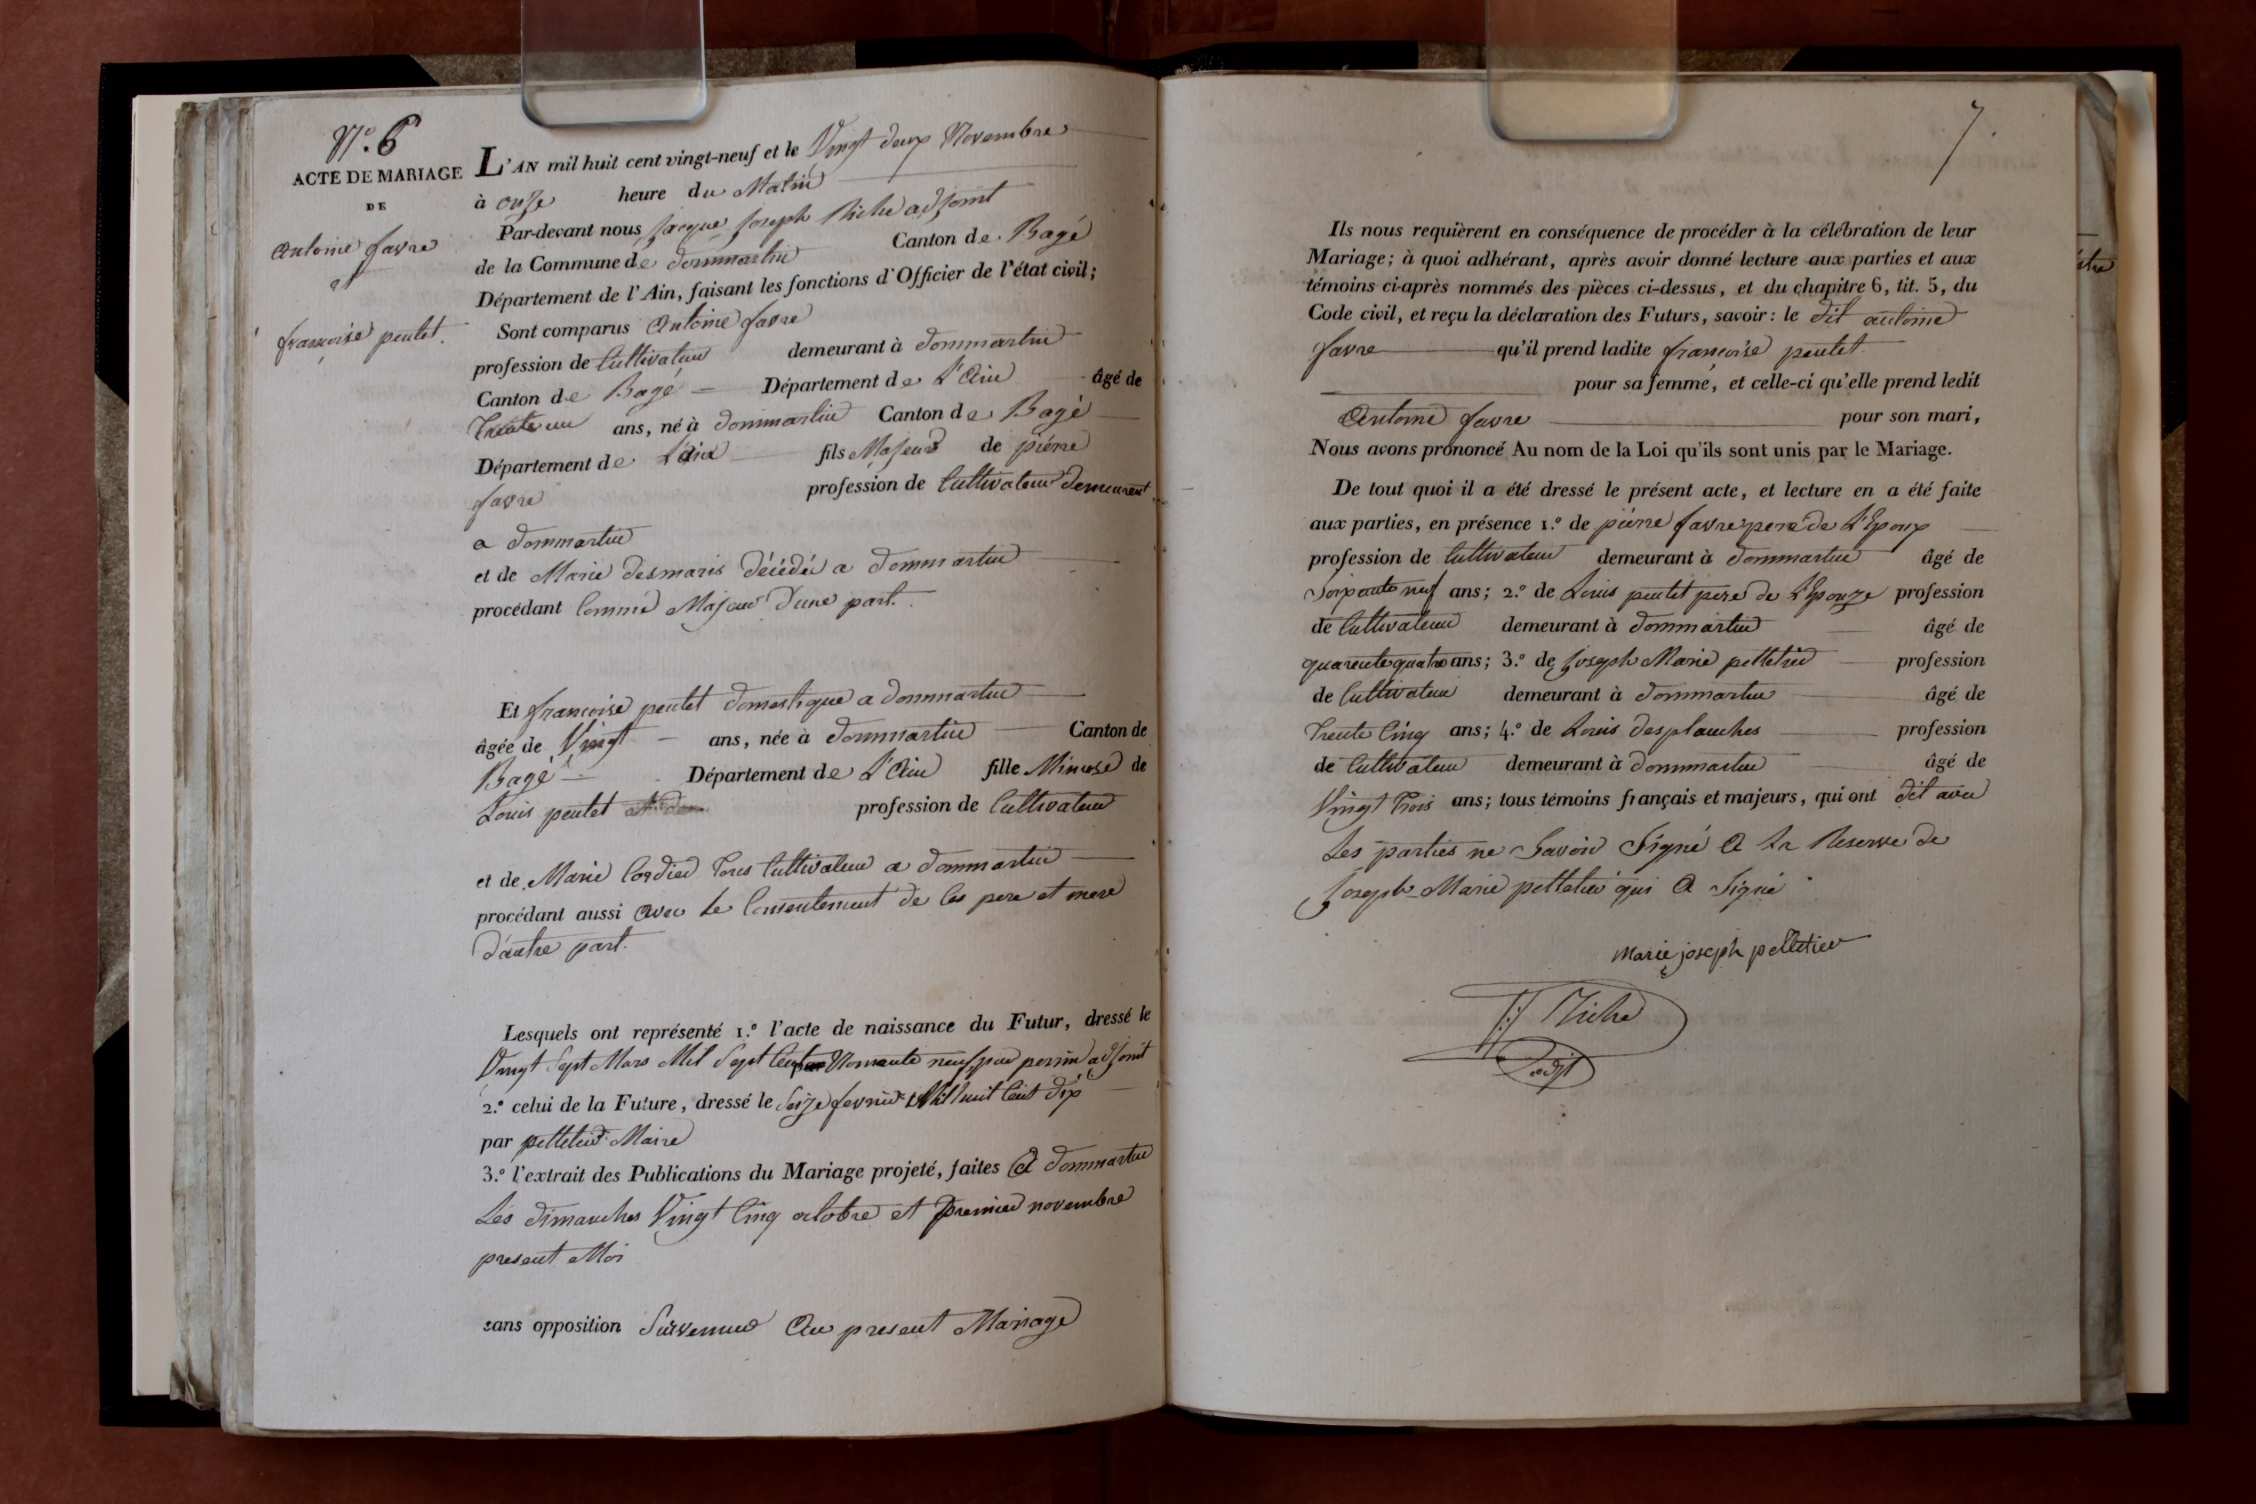 N.º 6
ACTE DE MARIAGE
DE
Antoine favre
et
françoise peutet.
L'AN mil huit cent vingt-neuf et le Vingt deux Novembre
à onze heure du Matin
Par-devant nous Jacque Joseph Riche adjoint
de la Commune de dommartin Canton de Bagé
Département de l'Ain, faisant les fonctions d'Officier de l'état civil;
Sont comparus Antoine favre
profession de Cultivateur demeurant à dommartin
Canton de Bagé Département de L'Ain âgé de
Trente un ans, né à dommartin Canton de Bagé
Département de L'ain fils Majeur de piérre
favre profession de Cultivateur demeurant
a dommartin
et de Marie desmaris décédée a dommartin
procédant Comme Majeur d'une part.
Et françoise peutet domestique a dommartin
âgée de Vingt ans, née à dommartin Canton de
Bagé Département de L'Ain fille Mineure de
Louis peutet profession de Cultivateur
et de Marie Cordier Tous Cultivateur a dommartin
procédant aussi avec le Consentement de ces pere et mere
d'autre part.
Lesquels ont représenté 1.º l'acte de naissance du Futur, dressé le
Vingt Sept Mars Mil Sept Cent Nonante neuf par perrin adjoint
2.º celui de la Future, dressé le Seize fevrier Mil huit Cent dix
par pelletier Maire
3.º l'extrait des Publications du Mariage projeté, faites A dommartin
Les dimanches Vingt Cinq octobre et premier novembre
present Moi
sans opposition Survenue Au present Mariage
7.
Ils nous requièrent en conséquence de procéder à la célébration de leur
Mariage; à quoi adhérant, après avoir donné lecture aux parties et aux
témoins ci-après nommés des pièces ci-dessus, et du chapitre 6, tit. 5, du
Code civil, et reçu la déclaration des Futurs, savoir: le dit antoine
favre qu'il prend ladite françoise peutet
pour sa femme, et celle-ci qu'elle prend ledit
Antoine favre pour son mari,
Nous avons prononcé Au nom de la Loi qu'ils sont unis par le Mariage.
De tout quoi il a été dressé le présent acte, et lecture en a été faite
aux parties, en présence 1.º de piérre favre pere de L'Epoux
profession de Cultivateur demeurant à dommartin âgé de
Soixante neuf ans; 2.º de Louis peutet pere de L'Epouze profession
de Cultivateur demeurant à dommartin âgé de
quarente quatre ans; 3.º de Joseph Marie pelletier profession
de Cultivateur demeurant à dommartin âgé de
Trente Cinq ans; 4.º de Louis desplanches profession
de Cultivateur demeurant à dommartin âgé de
Vingt Trois ans; tous témoins français et majeurs, qui ont dit avec
Les parties ne Savoir Signé A La Reserve de
Joseph Marie pelletier qui A Signé
marie joseph pelletier
J:J Riche
adjt